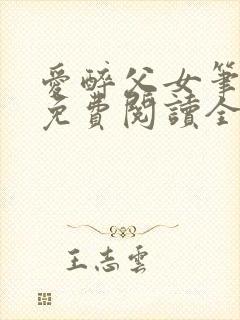 愛醉父女筆
免費閱讀全
王志雲